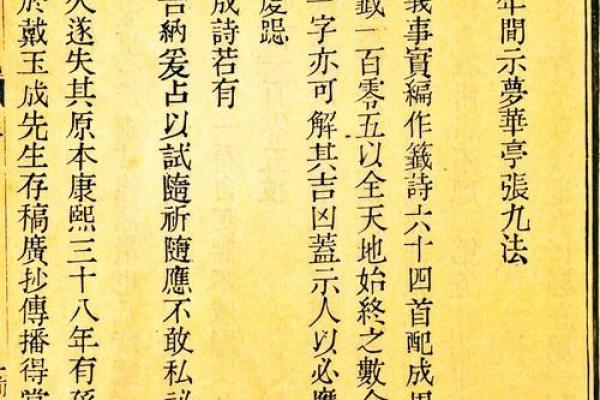 年間示夢華亭張九法
事實編作籤詩六十四首配成
籤一百零五以全天地始終之數
一字亦可解其吉凶蓋示人以必應
虔跽
成詩若有
吉納爰占以試隨祈隨應不敢私祕
久遂失其原本康熙三十八年有
於戴玉成先生存稿廣抄傳播得